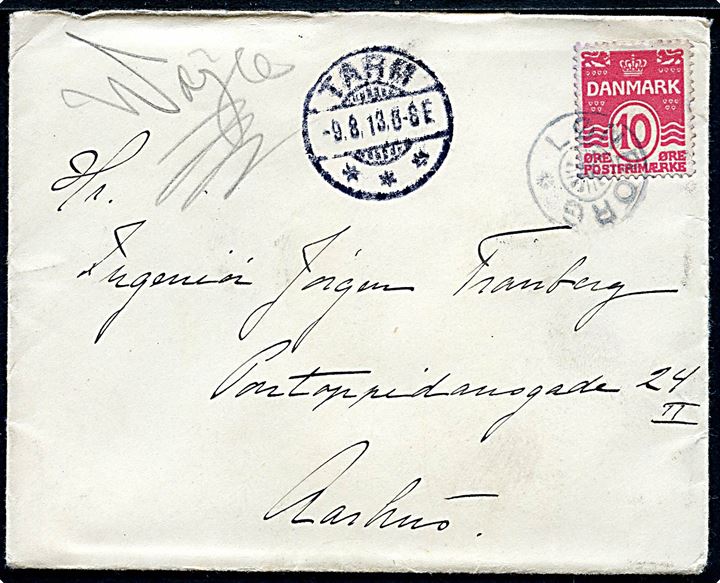 TARM
-9.8.13.6-8E
DANMARK
10
ØRE ØRE
POSTFRIMÆRKE
Hr.
Ingeniør Jörgen Tranberg
Pontoppidansgade 24
II
Aarhus.